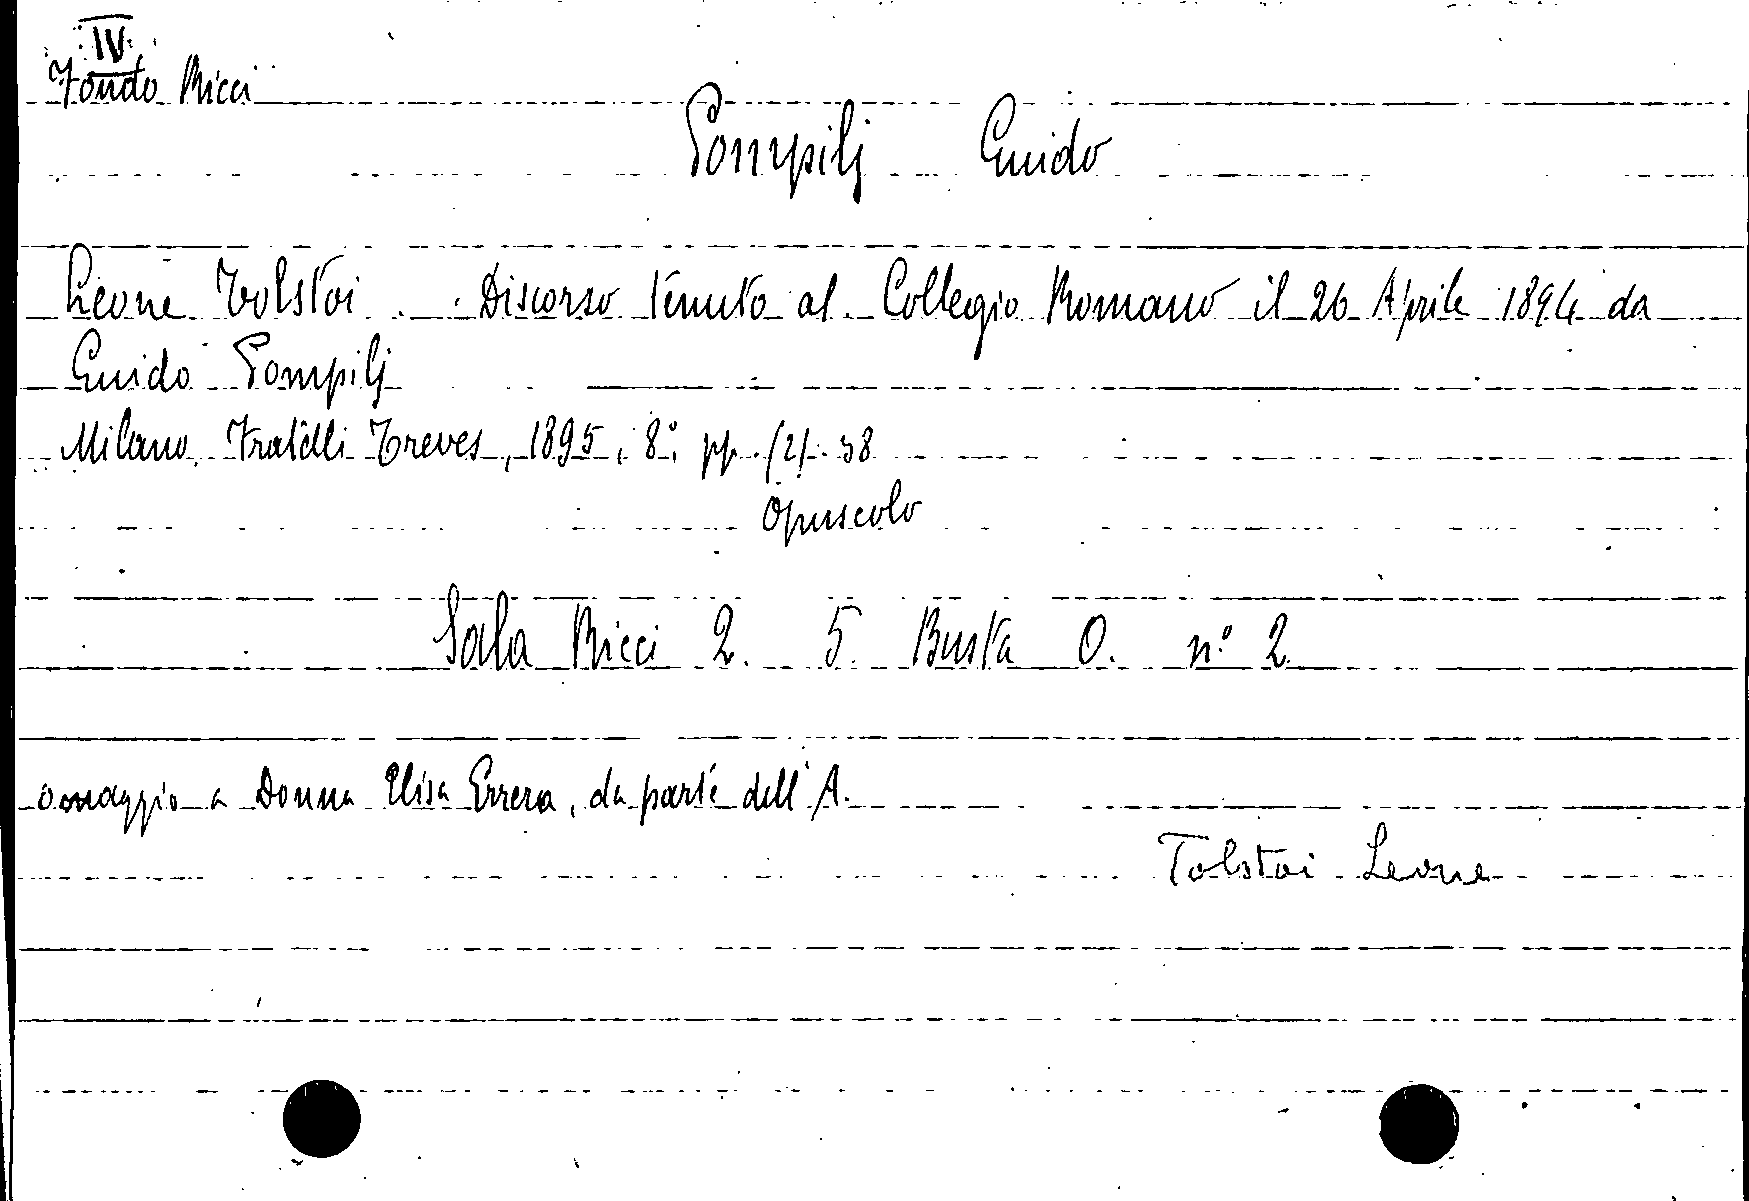 IV
Fondo Ricci
Pompilj Guido
Leone Tolstoi . Discorso tenuto al Collegio Romano il 26 Aprile 1894 da
Guido Pompilj
Milano, Fratelli Treves, 1895, 8°, pp. (2). 38
Opuscolo
Sala Ricci 2. 5. Busta O. n° 2
omaggio a Donna Elisa Errera, da parte dell'A.
Tolstoi Leone